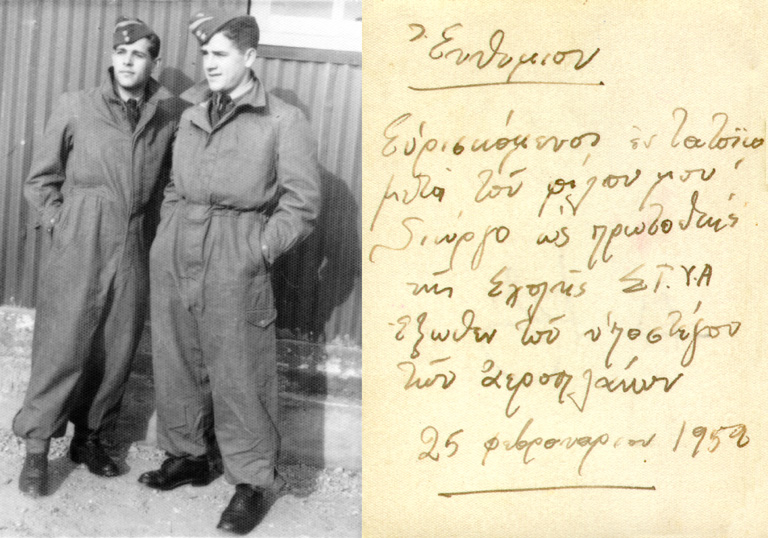 Ἐνθύμιον
Εὑρισκόμενος ἐν Τατοΐω
μετὰ τοῦ φίλου μου
Γιώργο ὡς πρωτοετής
τῆς Σχολῆς Σ.Τ.Υ.Α
Ἔξωθεν τοῦ ὑποστέγου
τῶν ἀεροπλάνων
25 φεβρουαρίου 195